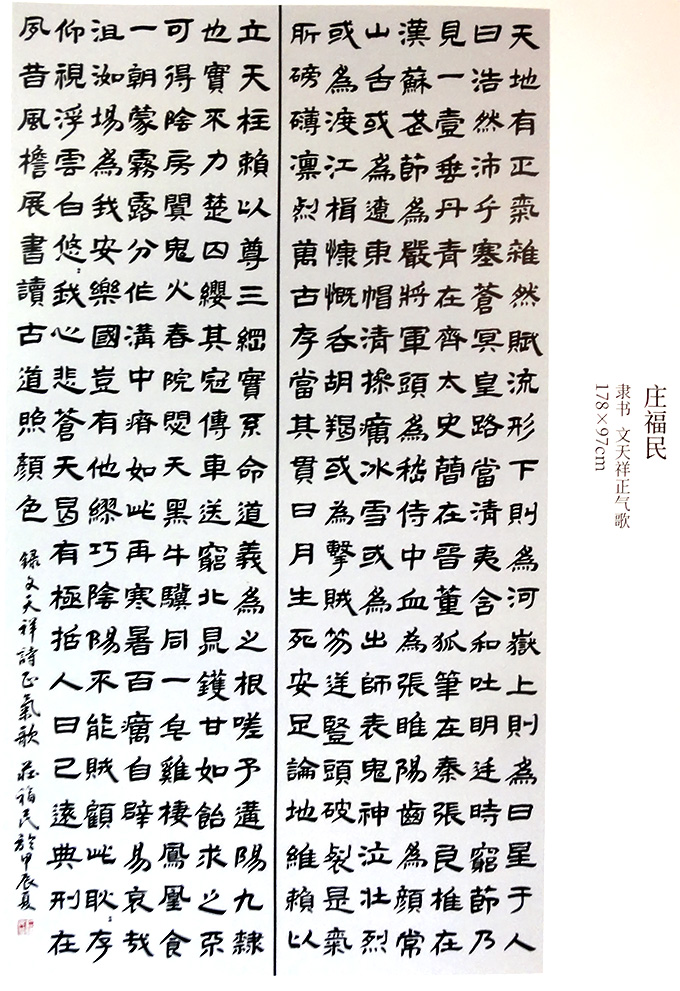 天地有正氣雜然賦流形下則為河嶽上則為日星于人
曰浩然沛乎塞蒼冥皇路當清夷含和吐明廷時窮節乃
見一壹垂丹青在齊太史簡在晉董狐筆在秦張良椎在
漢蘇武節為嚴將軍頭為嵇侍中血為張睢陽齒為顏常
山舌或為遼東帽清操癘冰雪或為出師表鬼神泣壯烈
或為渡江楫慷慨吞胡羯或為擊賊笏逆豎頭破裂是氣
所磅礴凜烈萬古存當其貫日月生死安足論地維賴以
立天柱賴以尊三綱實系命道義為之根嗟予遘陽九隸
也實不力楚囚纓其冠傳車送窮北鼎鑊甘如飴求之不
可得陰房闃鬼火春院閟天黑牛驥同一皂雞棲鳳凰食
一朝蒙霧露分作溝中瘠如此再寒暑百癘自辟易哀哉
沮洳場為我安樂國豈有他繆巧陰陽不能賊顧此耿:存
仰視浮雲白悠:我心悲蒼天曷有極哲人日已遠典刑在
夙昔風檐展書讀古道照顏色 錄文天祥詩正氣歌 莊福民於甲辰夏
庄福民
隶书 文天祥正气歌
178×97cm